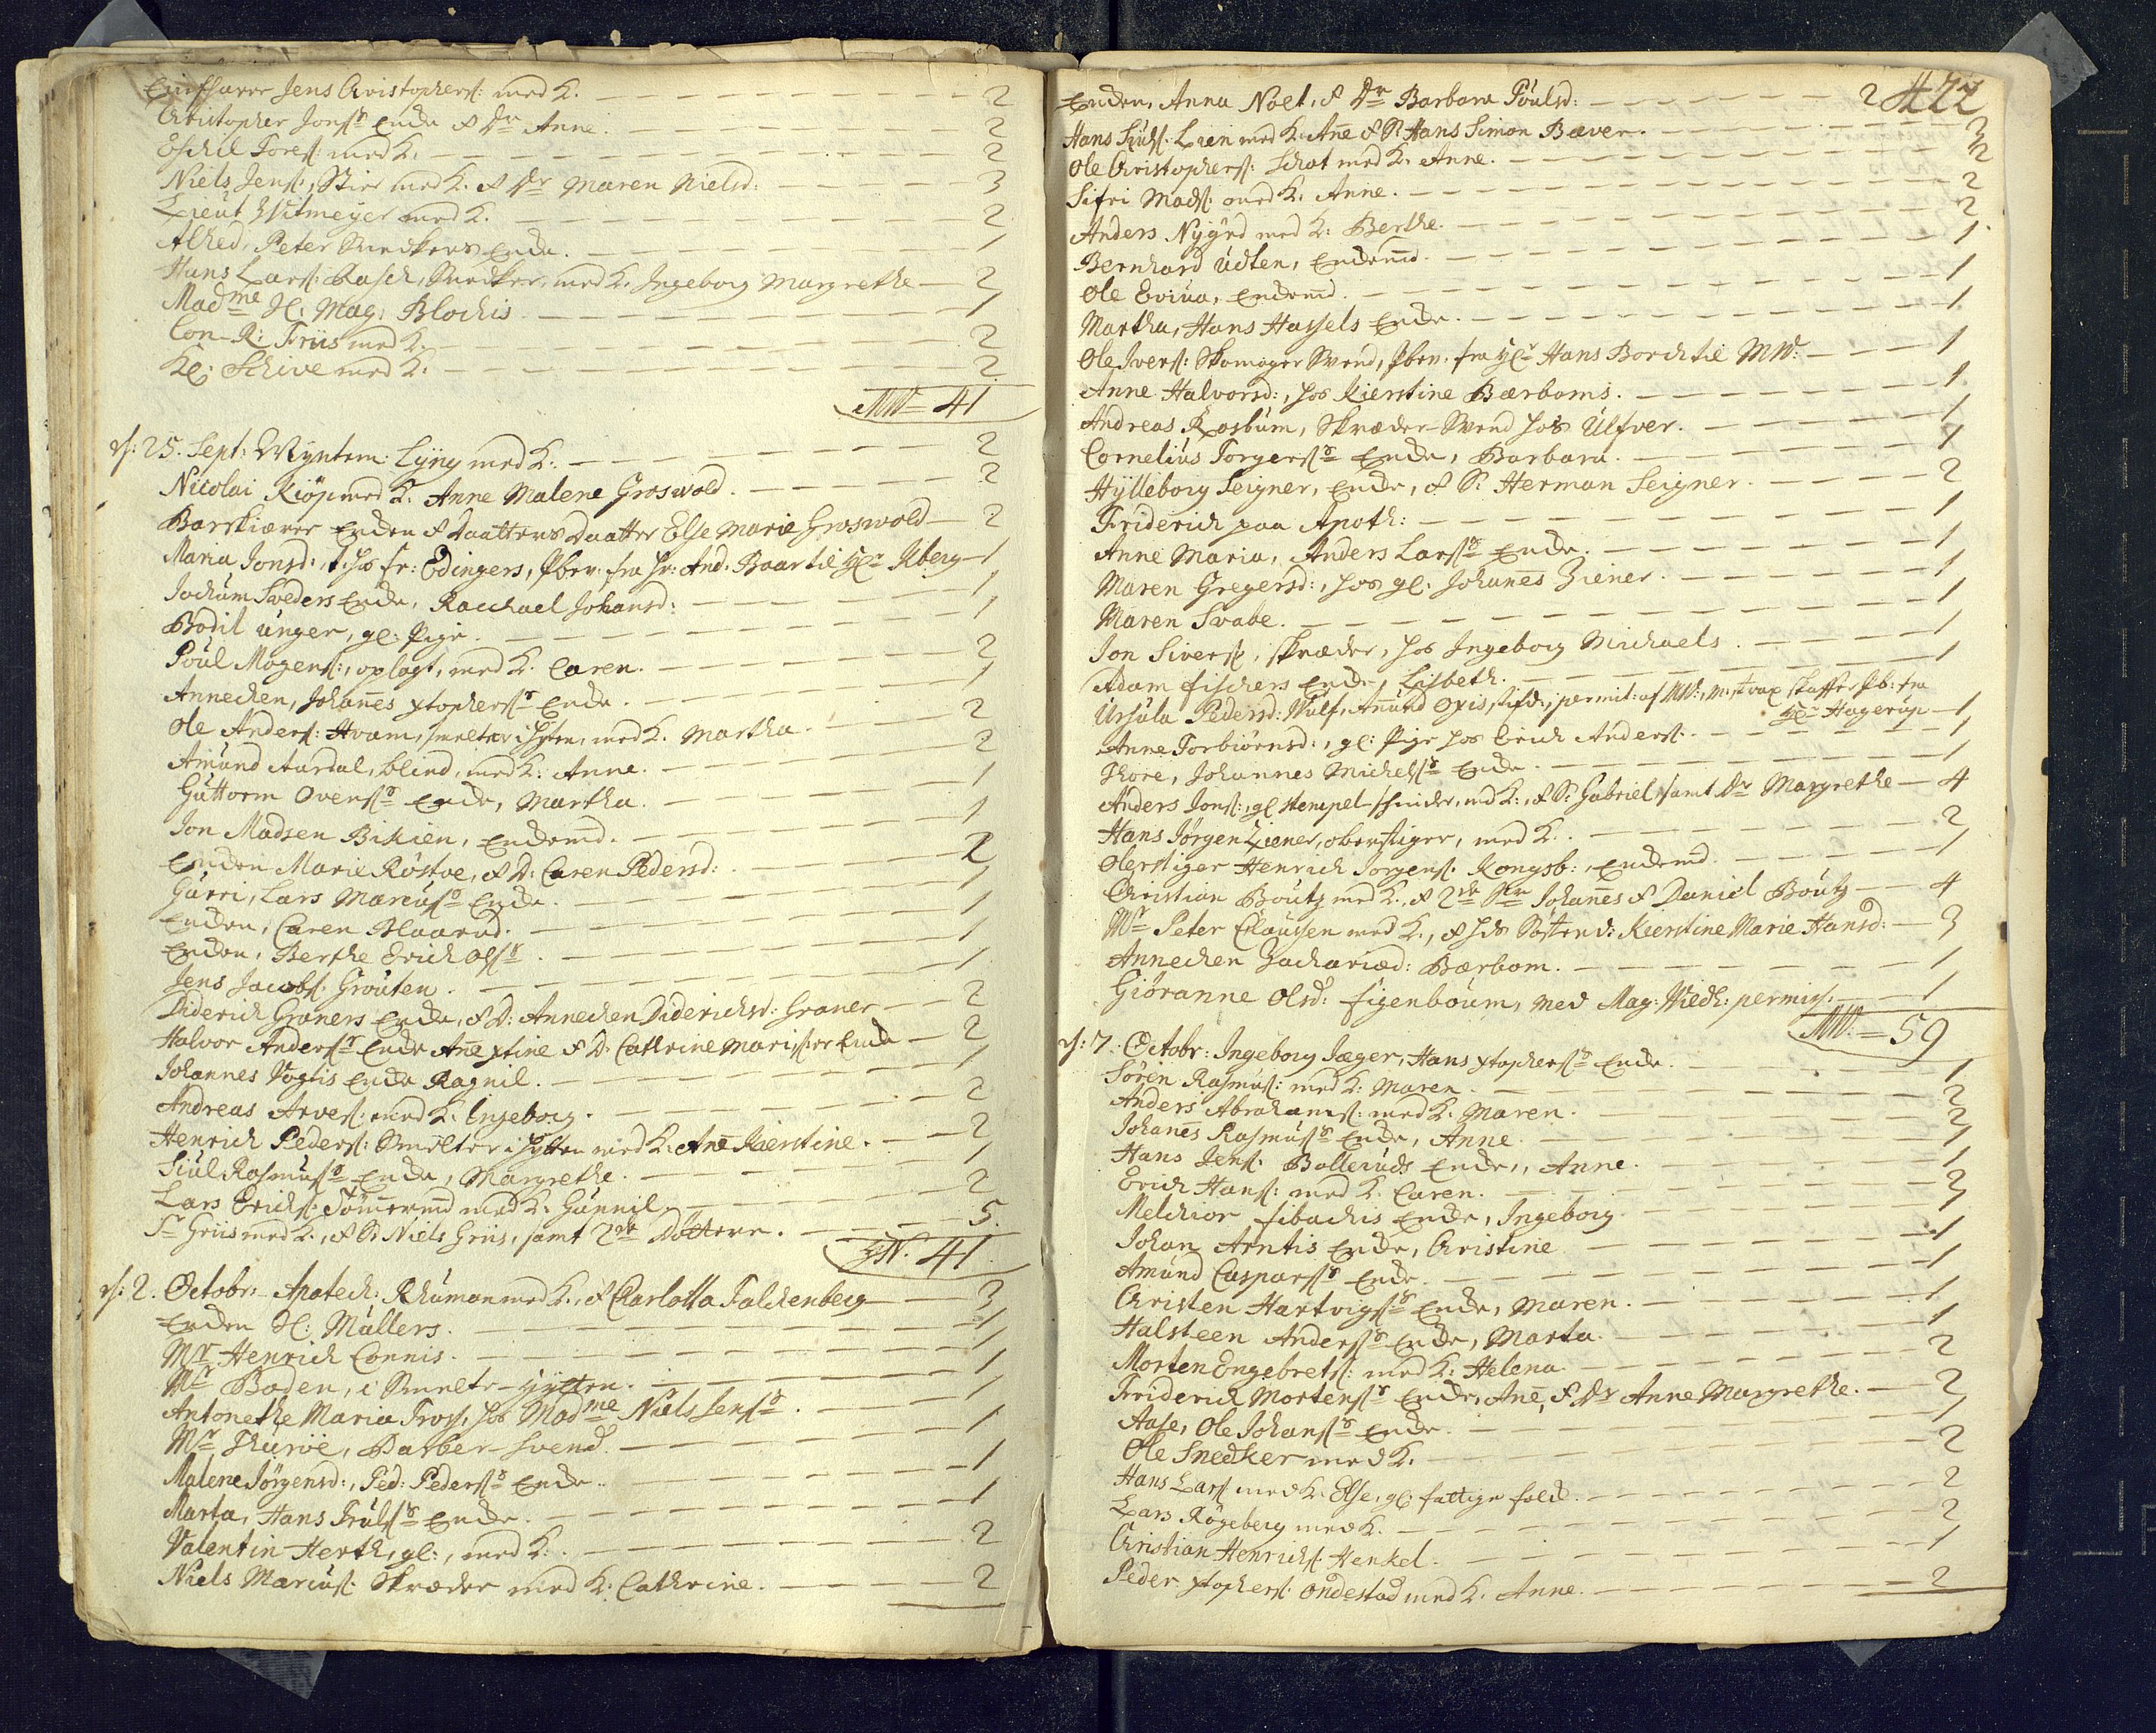 Jens Christophers: med K. 2
Christopher Jons Enke & Dr Anne. 2
Eschil Tores: med K. 2
Niels Jens:, Stier med K. & Dr Maren Nielsd: 3
Lieut Witmeyer med K. 2
Alhed, Peter Snedkers Enke. 1
Hans Lars: Rasch, Snedker, med K. Ingeborg Margrethe 2
Madme Sl: Mag: Blochis. 1
Con-R: Friis med K. 2
Kl: Schive med K. 2
MW = 41
d: 25. Sept: Myntem: Lyng med K. 2
Nicolai Kiöp med K. Anne Malene Groswold. 2
Barskiærer Enken & Daatters Daatter Else Marie Groswold 2
Maria Jonsd:, t. hos Fr: Edingers, fra Hr: And. Baar til 1
Jochum Sveders Enke, Racchael Johansd: 1
Bodil Unger, gl: Pige. 1
Poul Mogens:, oplagt, med K. Caren. 2
Annechen, Johanes xtophers Enke. 1
Ole Anders: Hvam, smelter i Hytten, med K. Martha. 2
Amund Aardal, blind, med K. Anne. 2
Guttorm Ovens Enke, Martha. 1
Jon Madsen Bikien, Enkemd. 1
Enken Marie Röstve, & D: Caren Pedersd: 2
Gurri, Lars Marcus Enke. 1
Enken, Caren Blaarud. 1
Enken, Berthe Erich Ols. 1
Jens Jacobs: Grouten. 1
Diderich Graners Enke, & D: Annechen Diderichsd: Graner 2
Halvor Anders Enke Ane xtine & D: Cathrine Enke 2
Johannes Vogtis Enke Ragnil. 1
Andreas Arves: med K. Ingeborg. 2
Henrich Peders: Smelter i Hytten med K. Ane Kierstine. 2
Siul Rasmus Enke, Margrethe. 1
Lars Erichs: Tömermd med K. Gunnil. 2
Sr Griis med K., & Sr Niels Griis, samt 2de Döttere. 5.
41
d: 2. Octobr. Apotech: Rhuman med K., & Charlotta Falchenberg 3
Enken Sl: Müllers. 1
Mr Henrich Connis. 1
Mr Boden, i Smelte-Hytten. 1
Antonethe Maria Tross, hos Madme Niels Jens. 1
Mr Thuröe, Barber-Svend. 1
Malene Jörgensd:, Ped: Peders Enke. 1
Marta, Hans Truls Enke. 1
Valentin Herth, gl:, med K. 2
Niels Marcus: Skræder med K. Cathrine. 2
422
Enken, Anna Noet, & Dr Barbara Poulsd: 2
Hans Siuls: Lien med K. Ane & Sr Hans Simon Bæver. 3
Ole Christophers: Schot med K. Anne. 2
Sifri Mads: med K. Anne. 2
Anders Nygrd med K. Berthe. 2
Bernhard Udten, Enkemd. 1
Ole Eviua, Enkemd. 1
Martha, Hans Hassels Enke. 1
Ole Ivers: Skomager Svend, fra Hans Borch til MW: 1
Anne Halvorsd:, hos Kierstine Bærboms. 1
Andreas Rosbum, Skræder-Svend hos Ulfver. 1
Cornelius Torgers Enke, Barbara. 1
Hylleborg Seigner, Enke, & Sr Herman Seigner. 2
Friderich paa Apoth: 1
Anne Maria, Anders Lars Enke. 1
Maren Gregersd:, hos gl: Johanes Ziener. 1
Maren Svabe. 1
Jon Sivers:, Skræder, hos Ingeborg Michaels. 1
Adam Fischers Enke, Lisbeth. 1
Ursula Pedersd: Wulf, Amund Opis, permit: af MW:, skaffe fra Hagerup 1
Anne Torbiörnsd:, gl: Pige hos Erich Anders. 1
Thore, Johannes Michels Enke. 1
Anders Jons:, gl stempel-schneider, md K., & Sr Gabriel samt Dr Margrethe 4
Hans Jörgen Ziener, oberstiger, med K. 2
Oberstiger Henrich Jorgens: Kongsb:, Enkemd. 1
Christian Boutz med K., & 2de Johanes & Daniel Boutz 4
Mr Peter Claussen med K., & hds Kierstine Marie Hansd: 3
Annechen Zachariæd: Bærbom. 1
Giöranne Olsd: Figenboum, med Mag: permiss: 1
MW. = 59
d: 7. Octobr: Ingeborg Jæger, Hans xtophers Enke. 1
Sören Rasmus: med K. Maren. 2
Anders Abrahams: med K. Maren. 2
Johanes Rasmus Enke, Anne. 1
Hans Jens: Balleruds Enke, Anne. 1
Erich Hans: med K. Caren. 2
Melchior Fibachis Enke, Ingeborg 1
Johan Arntis Enke, Christine 1
Amund Caspars Enke. 1
Christen Hartvigs Enke, Maren. 1
Halsteen Anders Enke, Marta. 1
Morten Engebrets: med K. Helena. 2
Friderich Mortens Enke, Ane, & Dr Anne Margrethe. 2
Aase, Ole Johans Enke. 1
Ole Snedker med K. 2
Hans Lars med K. Else, gl: fattige folck. 2
Lars Rögeberg med K. 2
Christian Henrichs: Henkel. 1
Peder xtophers: Ondestad med K. Anne. 2